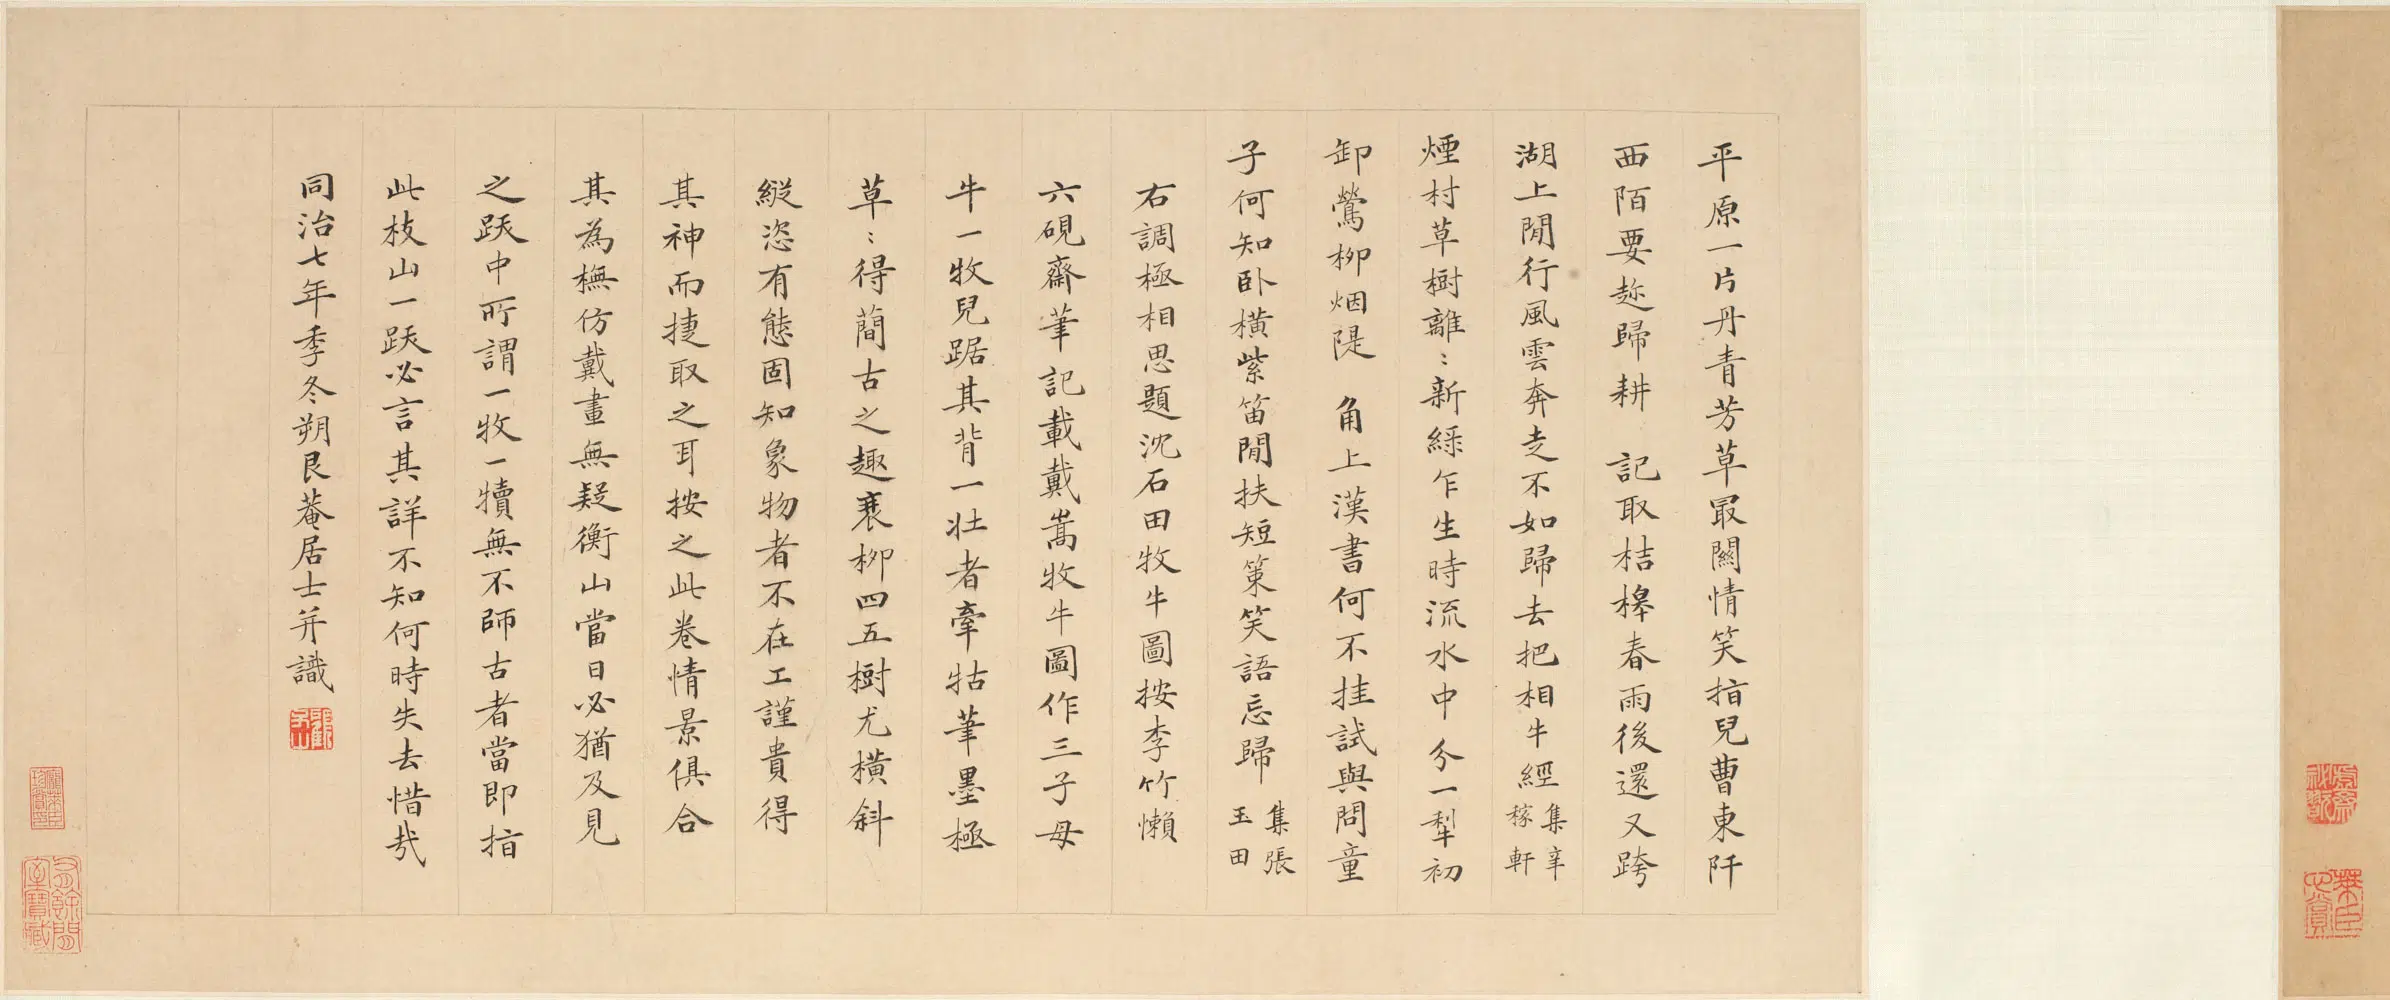 平原一片丹青芳草最關情笑指兒曹東阡
西陌要趂歸耕　記取桔槔春雨後還又跨
湖上閒行風雲奔走不如歸去把相牛經集辛稼軒
煙村草樹離〻新綠乍生時流水中分一犁初
卸鶯柳烟隄　角上漢書何不挂試與問童
子何知卧橫紫笛閒扶短策笑語忘歸集張玉田
右調極相思題沈石田牧牛圖按李竹懶
六硯齋筆記載戴嵩牧牛圖作三子母
牛一牧兒踞其背一壯者牽牯筆墨極
草〻得蕳古之趣衰柳四五樹尤橫斜
縱恣有態固知象物者不在工謹貴得
其神而捷取之耳按之此卷情景俱合
其為橅仿戴畫無疑衡山當日必猶及見
之跋中所謂一牧一犢無不師古者當即指
此枝山一跋必言其詳不知何時失去惜哉
同治七年季冬朔艮菴居士并識
有餘閒室寶臧